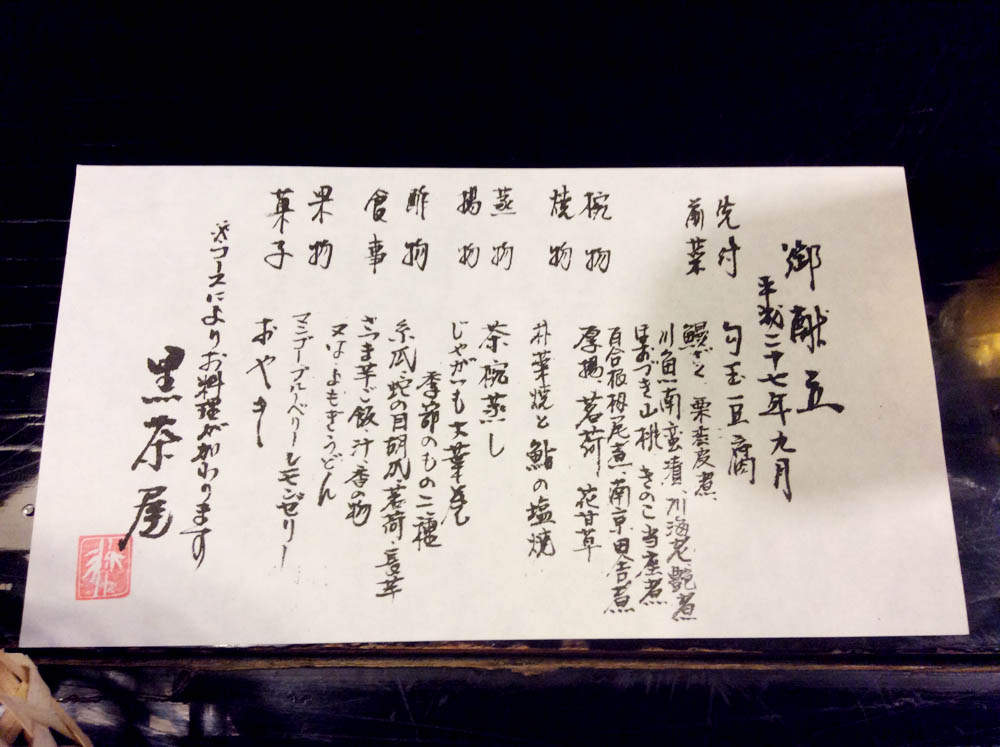 御献立
平成二十七年九月
先付 勾玉豆腐
前菜 鰻ざく 栗渋皮煮
川魚南蛮漬 川海老艶煮
ほおづき山桃 きのこ当座煮
百合根梅尼煮 南京田舎煮
椀物 厚揚 茗荷 花甘草
焼物 朴葉焼と鮎の塩焼
蒸物 茶碗蒸し
揚物 じゃがいも大葉
季節のもの二種
酢物 糸瓜、蛇の目胡瓜、茗荷、長芋
食事 さつま芋ご飯、汁、香の物
又はよもぎうどん
果物 マンゴーブルーベリーレモンゼリー
菓子 おやき
※コースによりお料理が加わります
黒茶屋